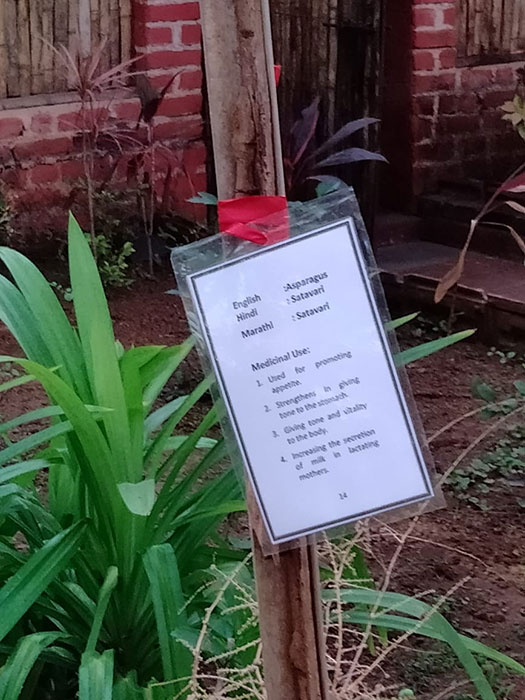 English :Asparagus
Hindi : Satavari
Marathi : Satavari
Medicinal Use:
1. Used for promoting
appetite.
2. Strengthens in giving
tone to the stomach.
3. Giving tone and vitality
to the body.
4. Increasing the secretion
of milk in lactating
mothers.
14